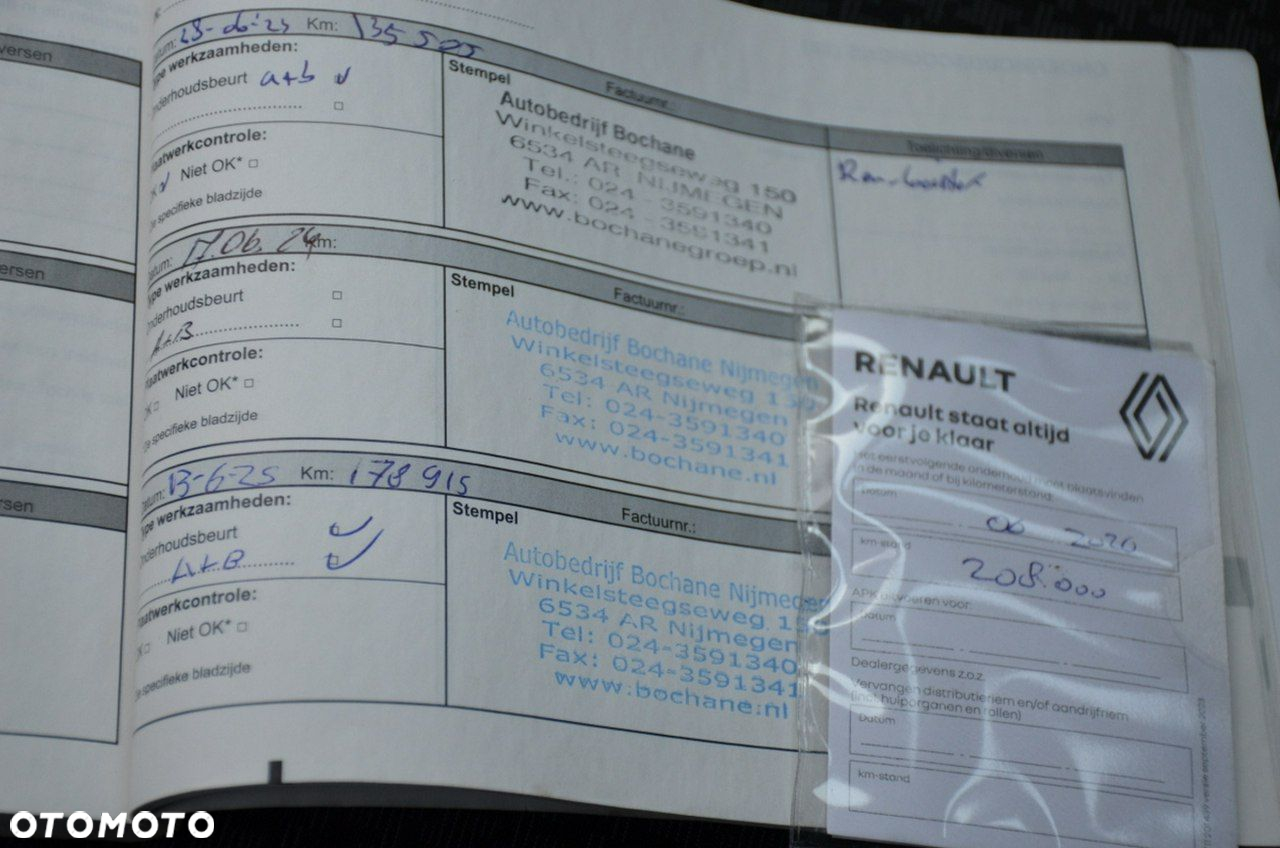 ersen
ersen
rsen
Datum: 28-06-23 Km: 135 505
Type werkzaamheden:
Onderhoudsbeurt a+b
Plaatwerkcontrole:
OK Niet OK*
Zie specifieke bladzijde
Stempel Factuurnr.:
Autobedrijf Bochane
Winkelsteegseweg 150
6534 AR NIJMEGEN
Tel.: 024 - 3591340
Fax: 024 - 3591341
www.bochanegroep.nl
Toelichting/diversen
Datum: 17.06.24 Km:
Type werkzaamheden:
Onderhoudsbeurt
A+B
Plaatwerkcontrole:
OK Niet OK*
Zie specifieke bladzijde
Stempel Factuurnr.:
Autobedrijf Bochane Nijmegen
Winkelsteegseweg 150
6534 AR Nijmegen
Tel: 024-3591340
Fax: 024-3591341
www.bochane.nl
Datum: 13-6-25 Km: 178 915
Type werkzaamheden:
Onderhoudsbeurt
A+B
Plaatwerkcontrole:
OK Niet OK*
Zie specifieke bladzijde
Stempel Factuurnr.:
Autobedrijf Bochane Nijmegen
Winkelsteegseweg 15
6534 AR Nijmegen
Tel: 024-3591340
Fax: 024-3591341
www.bochane.nl
RENAULT
Renault staat altijd
voor je klaar
Het eerstvolgende onderhoud moet plaatsvinden
in de maand of bij kilometerstand:
Datum
06 2026
km-stand
208.000
APK uitvoeren voor:
Datum
Dealergegevens z.o.z.
Vervangen distributieriem en/of aandrijfriem
(incl. hulporganen en rollen)
Datum
km-stand
versie september 2023
OTOMOTO